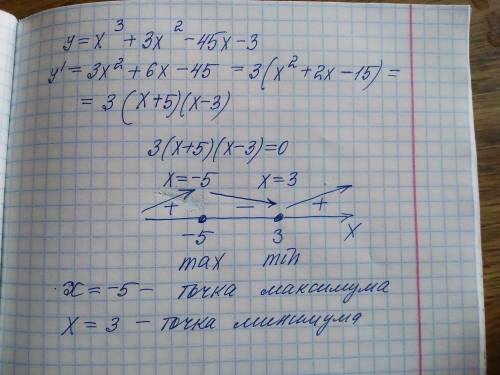 y = x³ + 3x² - 45x - 3
y' = 3x² + 6x - 45 = 3(x² + 2x - 15) =
= 3(x+5)(x-3)
3(x+5)(x-3)=0
x=-5 x=3
+ - +
-5 3 x
max min
x = -5 - точка максимума
x = 3 - точка минимума